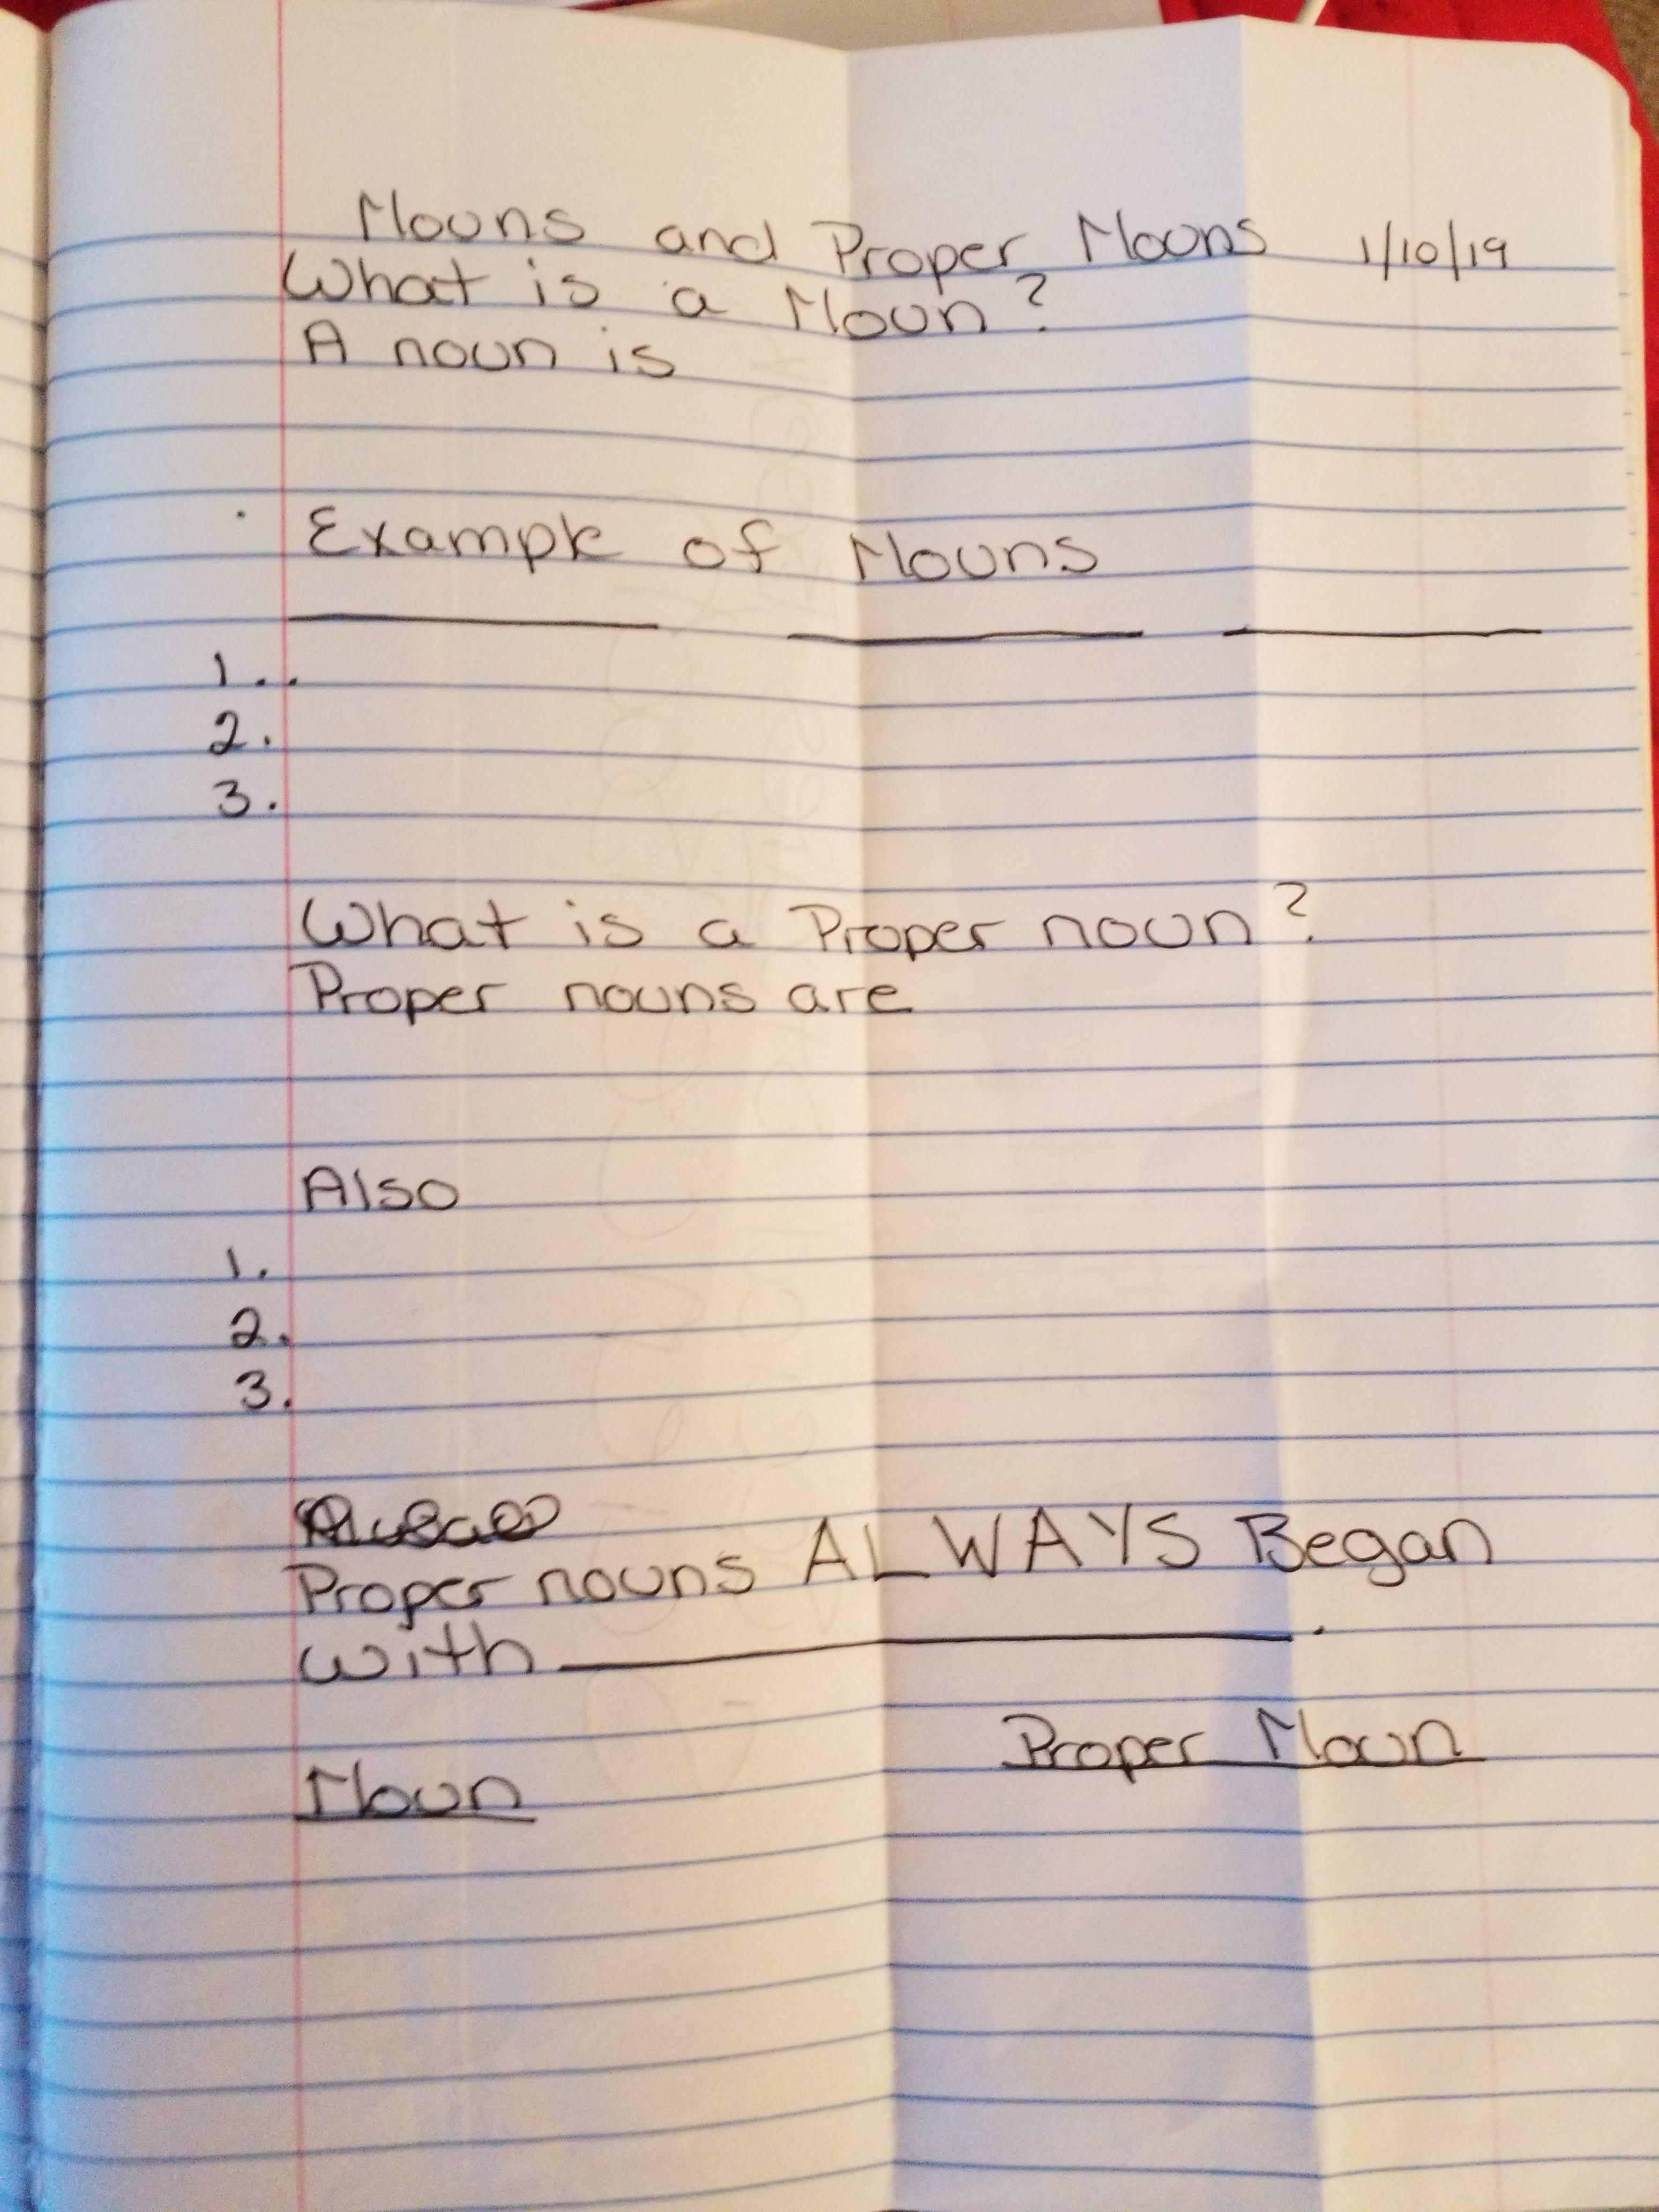 Nouns and Proper Nouns 1/10/19
What is a Noun?
A noun is
Example of Nouns
1..
2.
3.
What is a Proper noun?
Proper nouns are
Also
1.
2.
3.
Proper nouns ALWAYS Began
with .
Noun Proper Noun